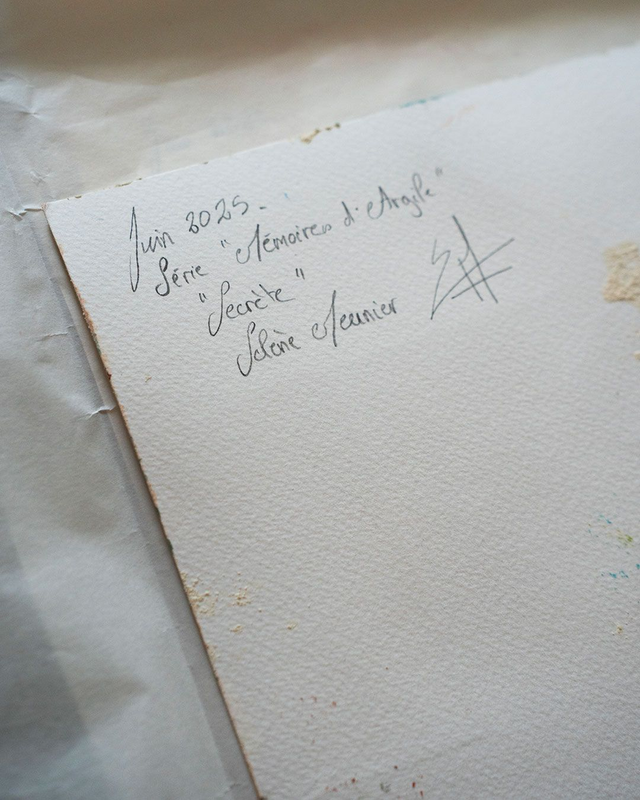 Juin 2025.
Série "Mémoires d'Argile"
"Secrète"
Solène Meunier